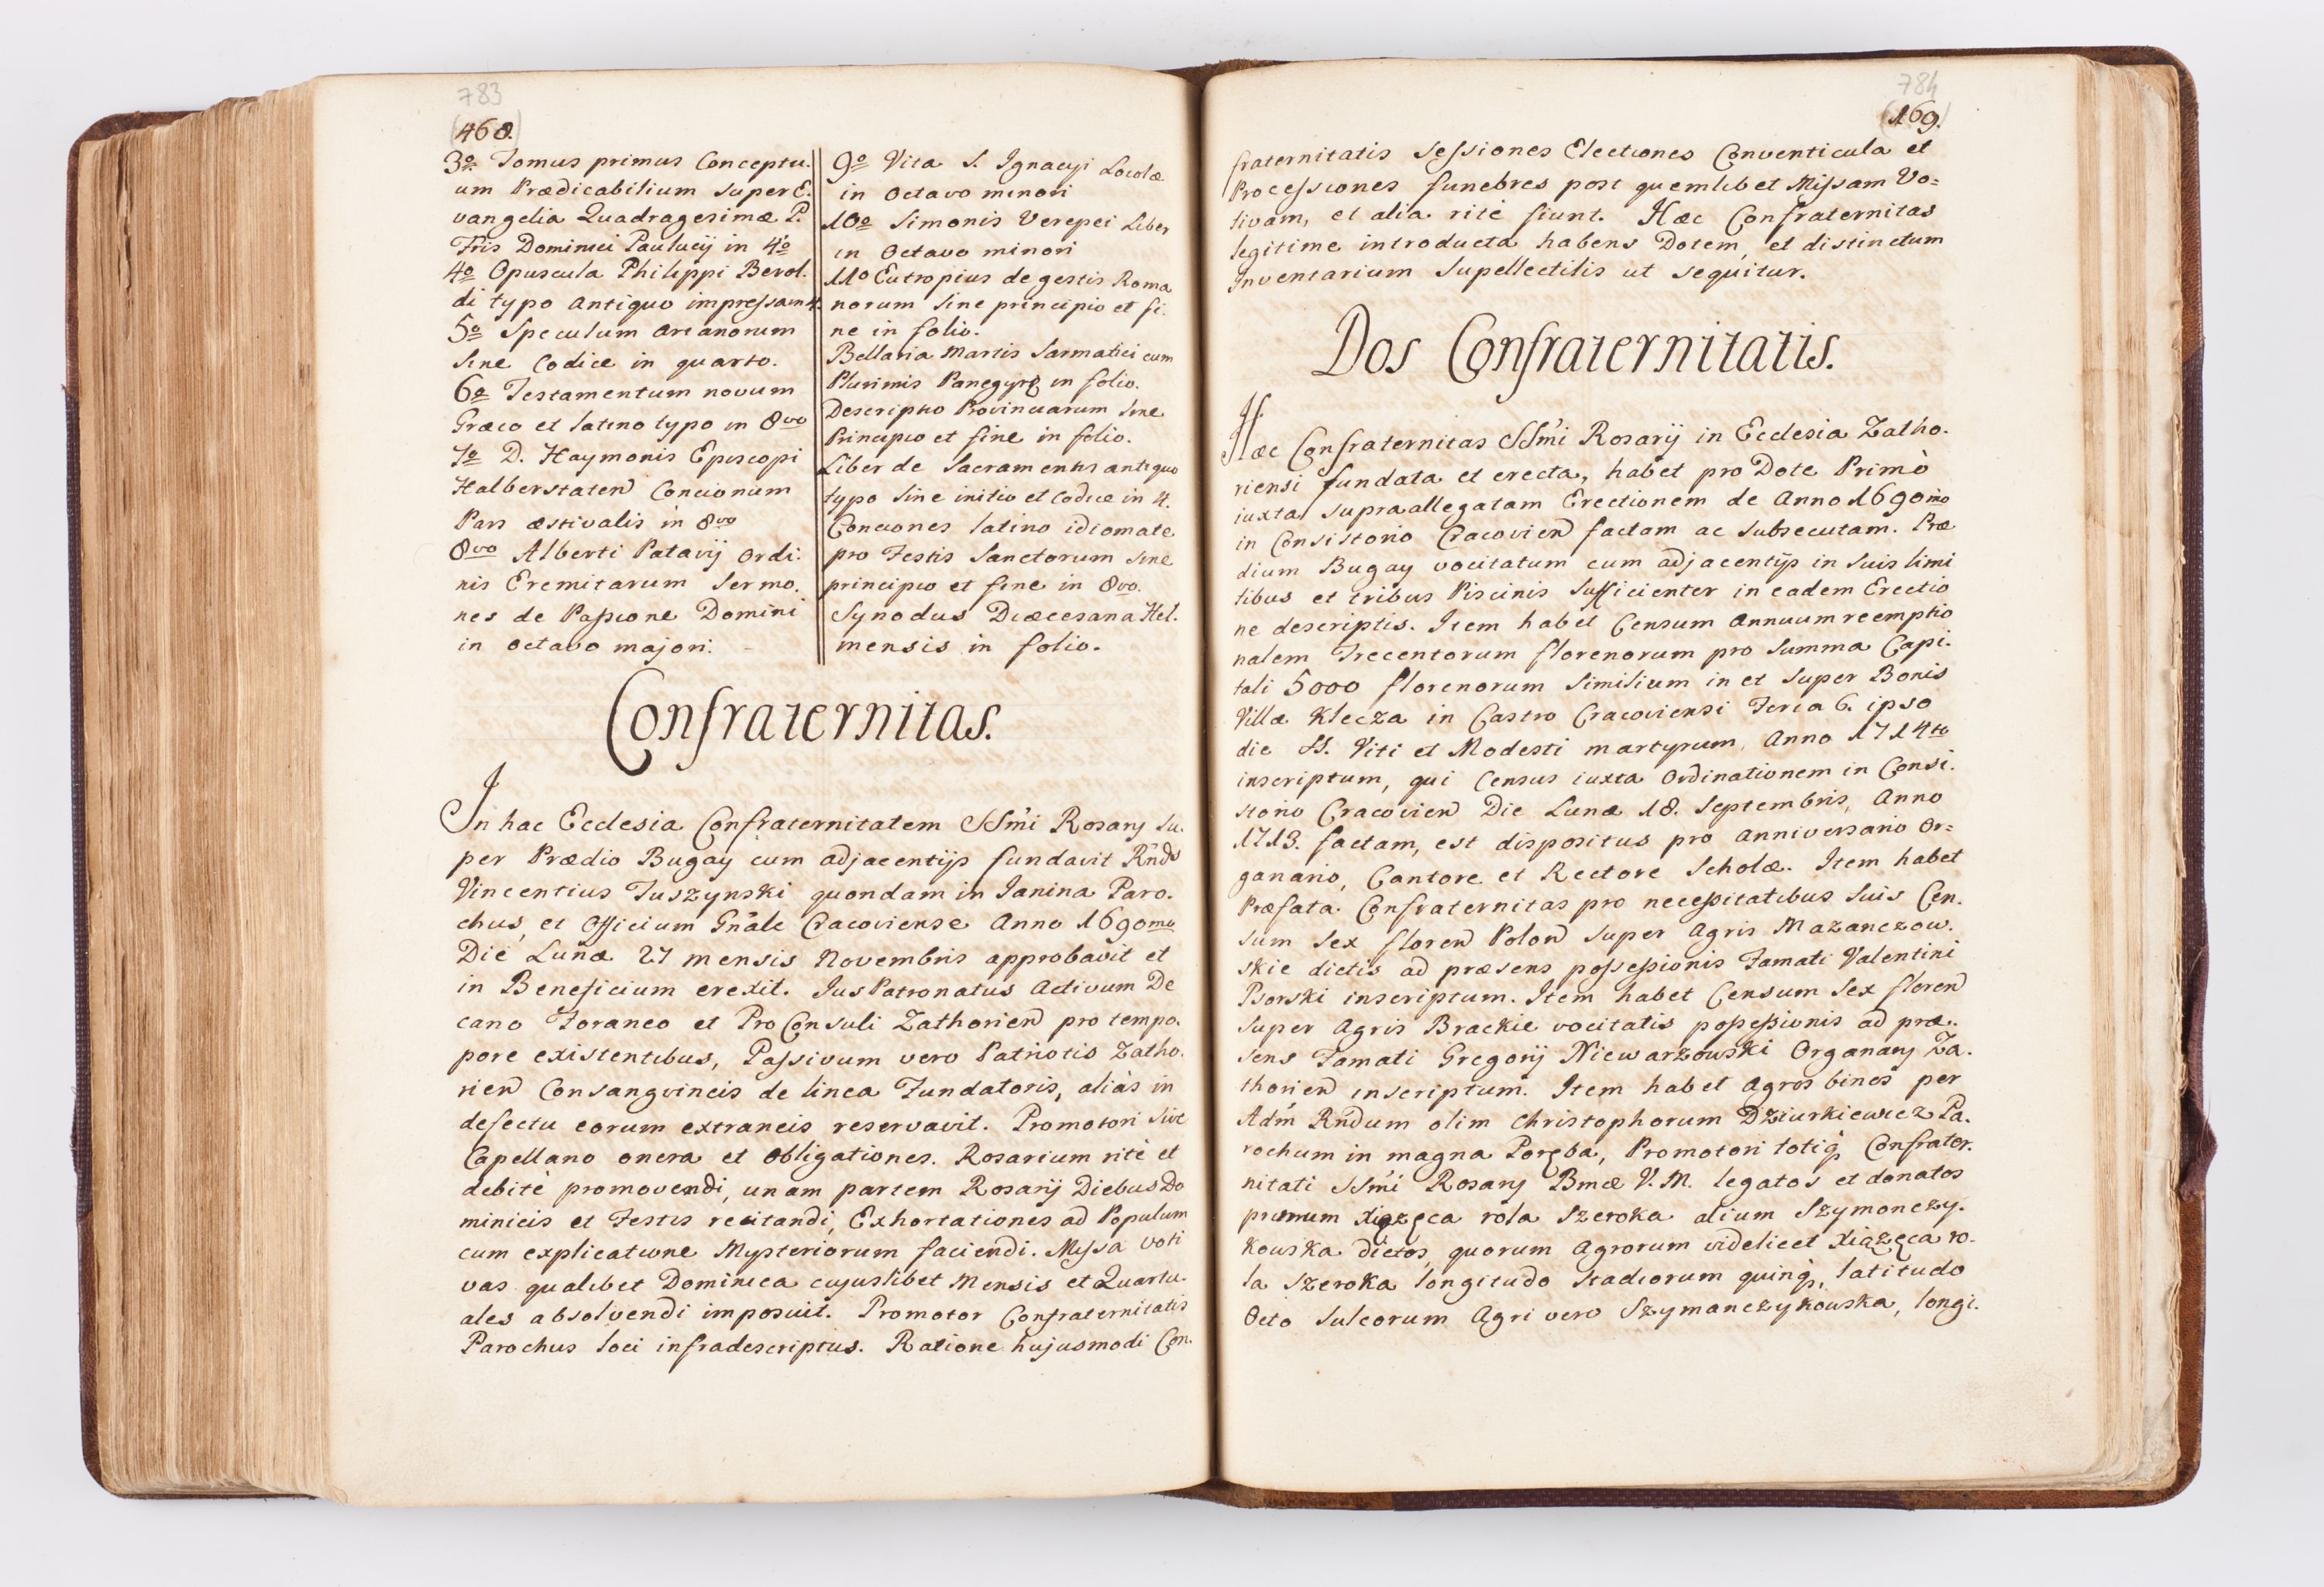 783
(468.)
3o Tomus primus Conceptu.
um Prædicabilium super E.
vangelia Quadragesimæ P.
Fris Dominici Paulucij in 4to
4o Opuscula Philippi Berol.
di typo antiquo impressam 4.
5o Speculum Arianorum
sine Codice in quarto.
6o Testamentum novum
Græco et latino typo in 8vo
7o D. Haymonis Episcopi
Halberstaten Concionum
Pars æstivalis in 8vo
8vo Alberti Patavij Ordi:
nis Eremitarum Sermo.
nes de Passione Domini
in octavo majori.
9o Vita S. Ignacyi Locolæ
in Octavo minori
10o Simonis Verepei Liber
in Octavo minori
11o Eutropius de gestis Roma
norum sine principio et fi.
ne in folio.
Bellaria Martis Sarmatici cum
Plurimis Panegyrę in folio.
Descriptio Provinciarum sine
Principio et fine in folio.
Liber de Sacramentis antiquo
typo sine initio et codice in 4.
Conciones latino idiomate
pro Festis Sanctorum sine
principio et fine in 8vo.
Synodus Diæcesana Hel.
mensis in folio.
Confraternitas.
In hac Ecclesia Confraternitatem SSmi Rosary su.
per Prædio Bugay cum adjacentijs fundavit Rnds
Vincentius Tuszynski quondam in Janina Paro.
chus, et Officium Gnale Cracoviense Anno 1690mo
Die Lunæ 27 mensis Novembris approbavit et
in Beneficium erexit. Jus Patronatus Activum De
cano Foraneo et ProConsuli Zathorien pro tempo.
pore existentibus, Passivum vero Patriotis Zatho.
rien Consangvineis de linea Fundatoris, aliàs in
defectu eorum extraneis reservavit. Promotori sive
Capellano onera et Obligationes. Rosarium ritè et
debitè promovendi, unam partem Rosarij Diebus Do
minicis et Festis recitandi, Exhortationes ad Populum
cum explicatione Mysteriorum faciendi. Missa voti
vas qualibet Dominica cujuslibet Mensis et Quartu.
ales absolvendi imposuit. Promotor Confraternitatis
Parochus loci infradescriptus. Ratione hujusmodi Con.
784
(169.)
fraternitatis Sessiones Electiones Conventicula et
Processiones funebres post quemlibet Missam Vo=
tivam, et alia ritè fiunt. Hæc Confraternitas
legitime introducta habens Dotem, et distinctum
Inventarium Supellectilis ut sequitur.
Dos Confraternitatis.
Hæc Confraternitas SSmi Rosarij in Ecclesia Zatho.
riensi fundata et erecta, habet pro Dote Primò
iuxta supraallegatam Erectionem de Anno 1690mo
in Consistorio Cracovien factam ac subsecutam. Præ
dium Bugay vocitatum cum adjacentijs in suis limi
tibus et tribus Piscinis sufficienter in eadem Erectio
ne descriptis. Item habet Censum annuum reemptio
nalem Trecentorum florenorum pro Summa Capi.
tali 5000 florenorum similium in et super Bonis
Villæ Klecza in Castro Cracoviensi Feria 6. ipso
die SS. Viti et Modesti martyrum, Anno 1714to
inscriptum, qui Census iuxta Ordinationem in Consi.
storio Cracovien Die Lunæ 18. Septembris, Anno
1713. factam, est dispositus pro anniversario Or=
ganario, Cantore et Rectore Scholæ. Item habet
Præfata Confraternitas pro necessitatibus suis Cen.
sum sex floren Polon super Agris Mazanczow.
skie dictis ad præsens possessionis Famati Valentini
Psorski inscriptum. Item habet Censum sex floren
super Agris Brackie vocitatis possessionis ad præ.
sens Famati Gregorij Niewarzowski Organary Za.
thorien inscriptum. Item habet Agros binos per
Adm Rndum olim Christophorum Dziurkiewicz Pa.
rochum in magna Poręba, Promotori totiq Confrater.
nitati SSmi Rosary Bmæ V. M. legatos et donatos
primum Xiązęca rola szeroka alium Szymonczy.
kowska dictos, quorum Agrorum videlicet Xiązęca ro.
la szeroka longitudo stadiorum quinq, latitudo
Octo sulcorum Agri vero Szymanczykowska, longi.